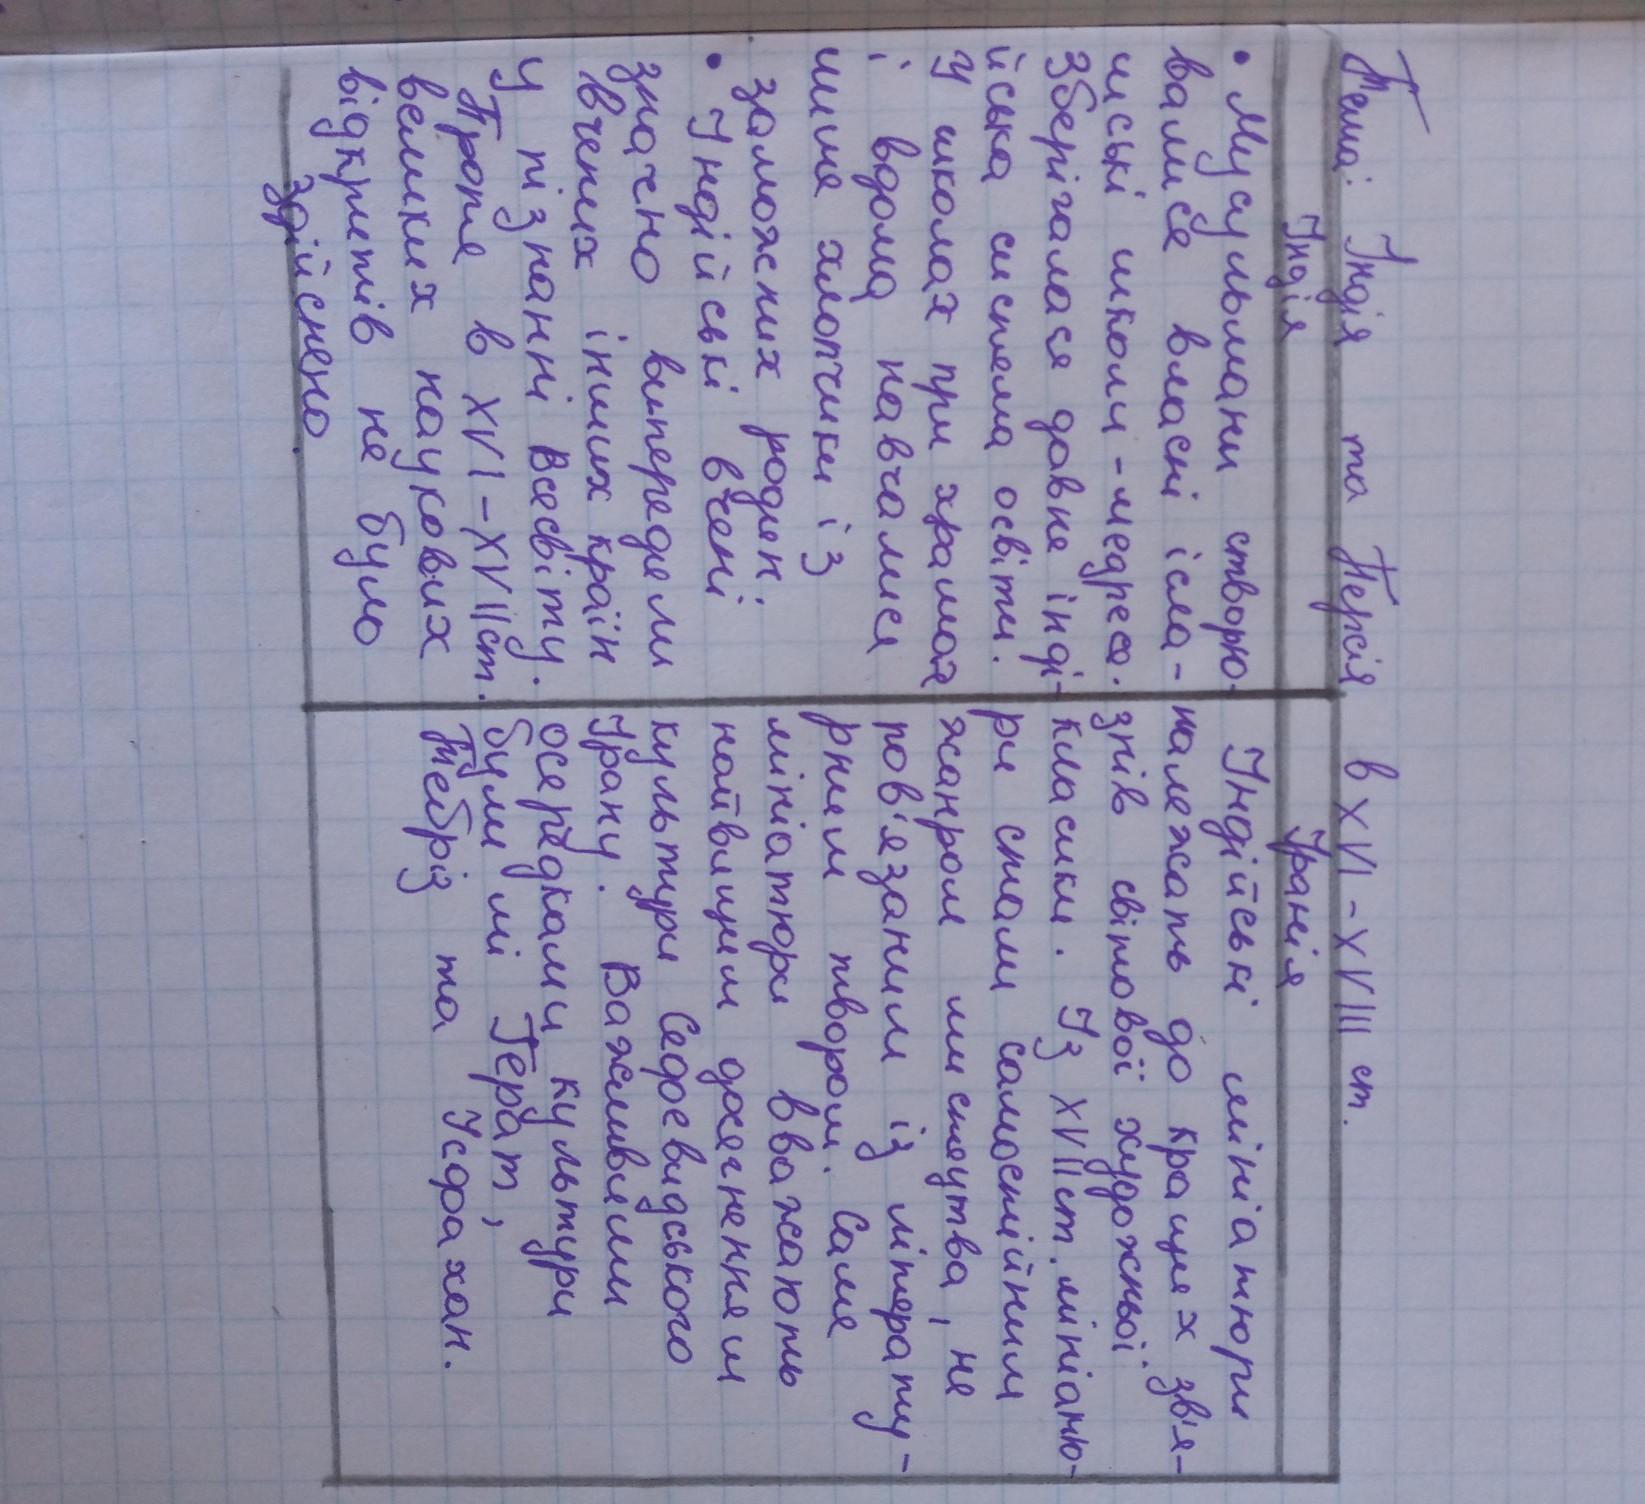 Тема: Індія та Персія в XVI-XVIII ст.
Індія
• Мусульмани створю-
вались власні ісла-
мські школи-медреса.
Зберігалася давня інді-
йська система освіти.
У школах при храмах
і вдома навчалися
лише хлопчики із
заможних родин.
• Індійські вчені
значно випередили
вчених інших країн
у пізнанні Всесвіту.
Проте в XVI-XVII ст.
великих наукових
відкриттів не було
здійснено.
Іранія
Індійські мініатюри
належать до кращих зв'я-
знів світової художньої
класики. Із XVII ст. мініатю-
ри стали самостійним
жанром мистецтва, не
пов'язаним із літерату-
рним твором. Саме
мініатюри вважають
найвищим досягненням
культури Сефевидського
Ірану. Важливими
осередками культури
були мі Герат,
Тебріз та Ісфахан.